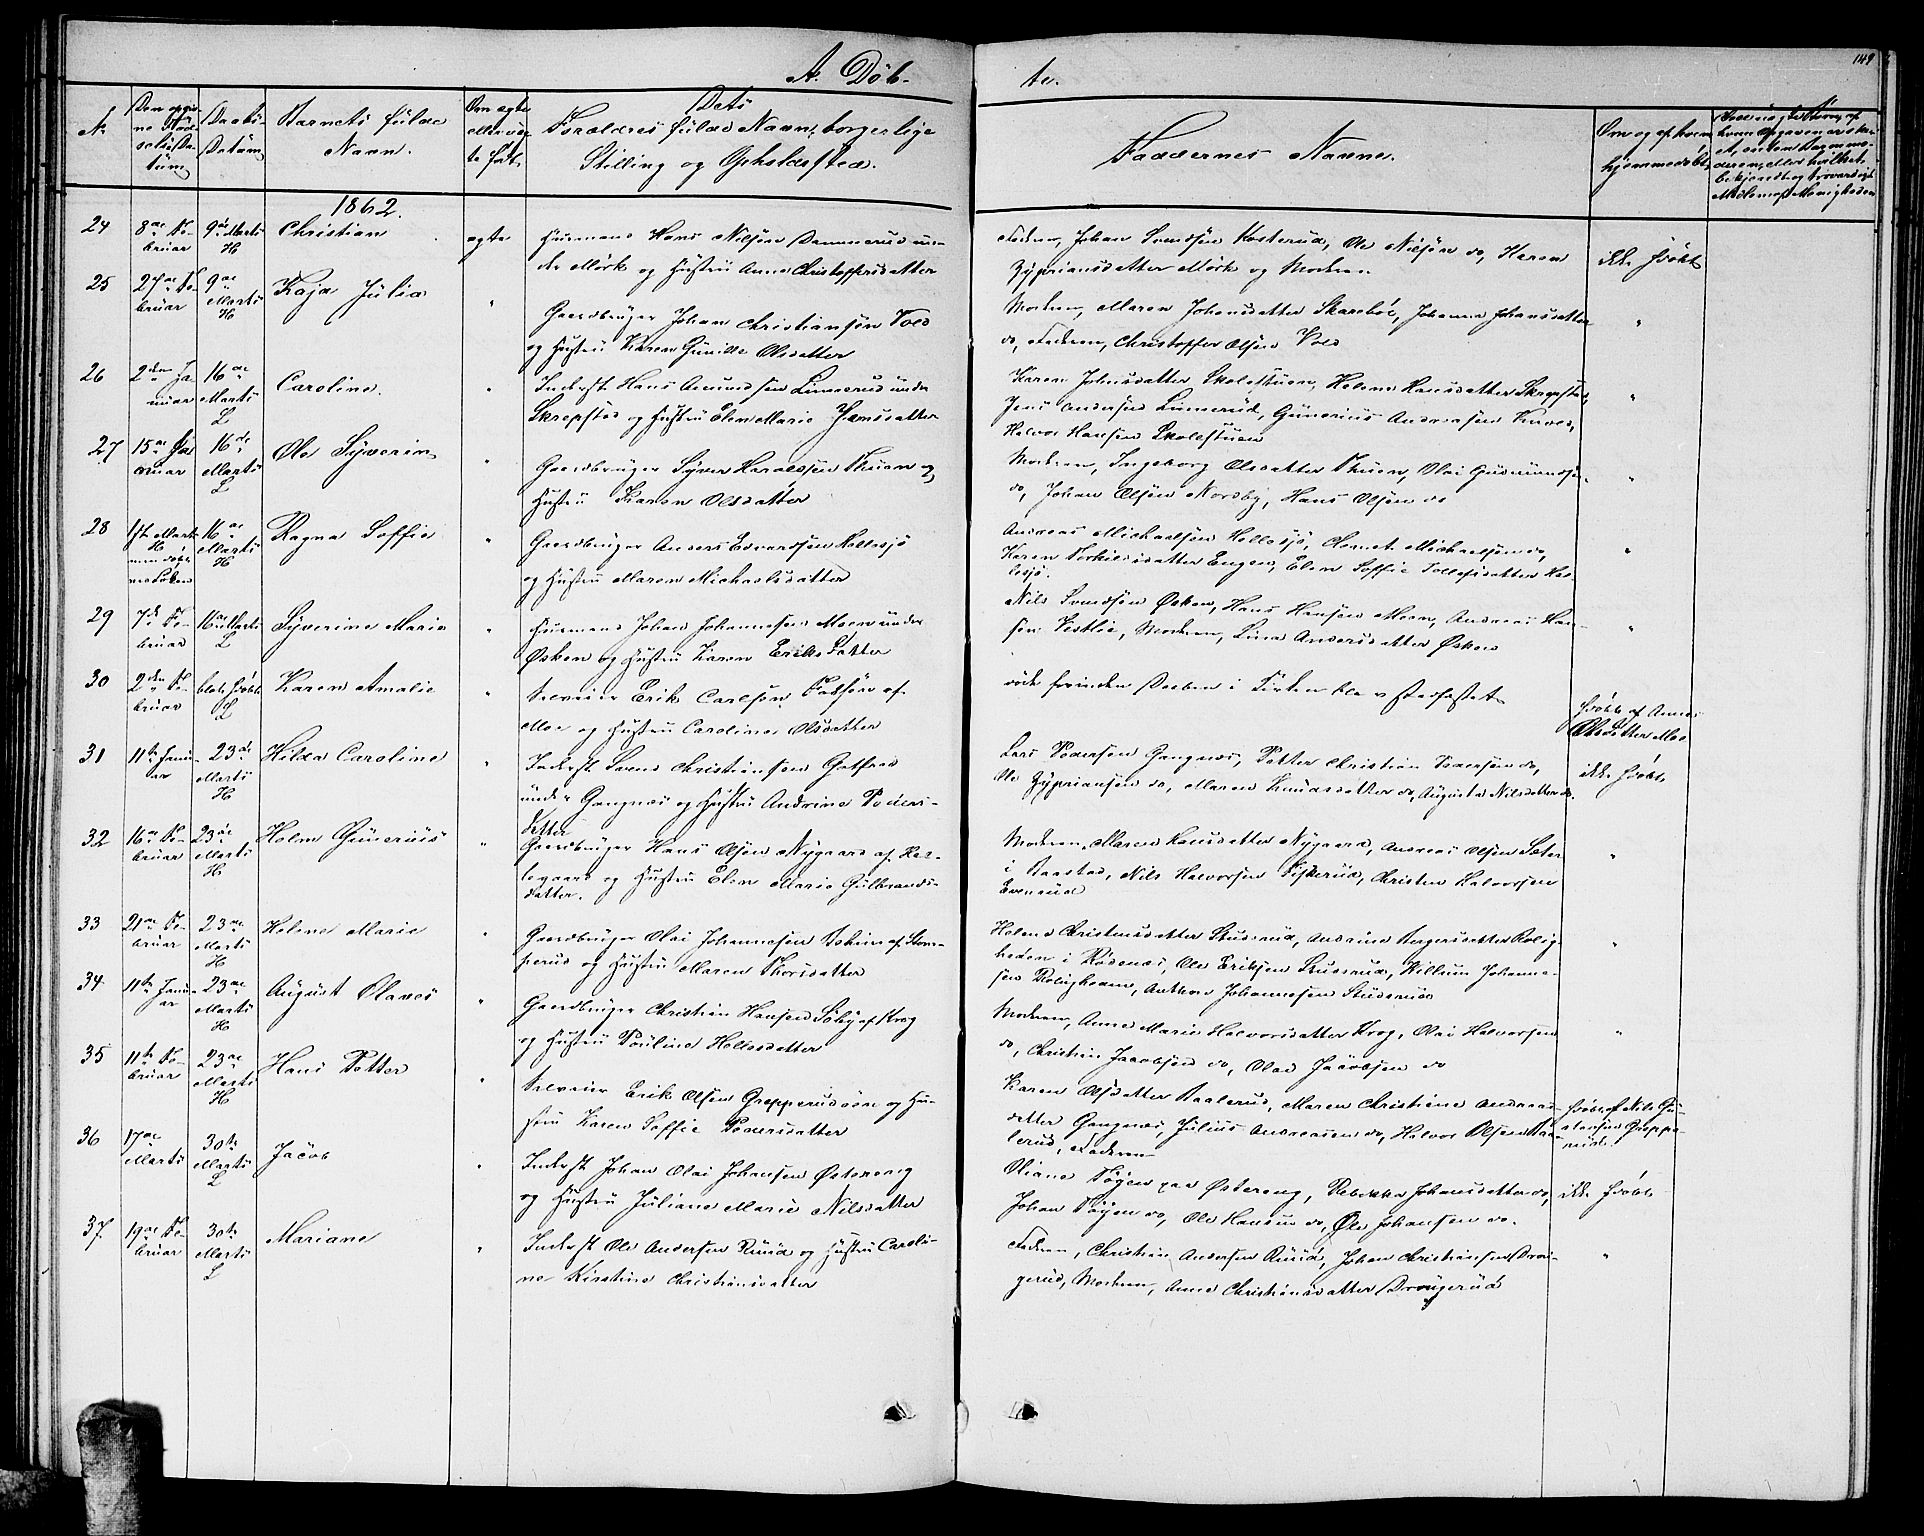 149
A. Döb-
te.
No
Barnets fulde
Navn.
Dets
Forældres fulde Navn, borgerlige
Stilling og Opholdssted.
Faddernes Navne.
Om og af hvem
hjemmedöbt
1862.
24
9de Marts
H
Christian
ægte
Huusmand Hans Nilsen
Mörk og Hustru Anne Christophersdatter
Faderen, Johan Svendsen Kosterud, Ole Nilsen do, Karen
Zyprians datter Mörk og Moderen
ikke hjdöbt
25
27de Fe-
bruar
9de
Marts
H
Kaja Julia
"
Gaardbruger Johan Christiansen Vold
og Hustru Karen Gunille Olsdatter
Moderen, Maren Johansdatter Skareböl, Johanne Johansdatter
do, Faderen, Christopher Olsen Vold
"
26
2den Ja-
nuar
16de
Marts
L
Caroline.
"
Inderst Hans Amundsen Linnerud under
Skrepstad og Hustru Elen Marie Hansdatter
Karen Johnsdatter Skolestuen, Helene Hansdatter Skrepstad,
Jens Andersen Linnerud, Gunerius Andreasen
Halvor Hansen Skolestuen
"
27
15de Ja-
nuar
16de
Marts
L
Ole Syverin
"
Gaardbruger Syver Haraldsen Thuen og
Hustru Karen Olsdatter
Moderen, Ingeborg Olsdatter Thuen, Olai Gudmundsen
do, Johan Olsen Nordby, Hans Olsen do
"
28
1ste Marts
16de
Marts
H
Ragna Soffie
"
Gaardbruger Anders Edvardsen Hellesjö
og Hustru Maren Michaelsdatter
Andreas Michaelsen Hellesjö, Michaelsen do,
Karen Torkildsdatter Engen, Elen Soffie Tollefsdatter Hel-
lesjö.
"
29
7de Fe-
bruar
16de Marts
L
Syverine Marie
"
Huusmand Johan Johannesen Moen under
Ösken og Hustru Karen Eriksdatter
Nils Svendsen Ösken, Hans Hansen Moen, Andreas Han-
sen Vestlie, Moderen, Lina Andersdatter Ösken
"
30
2den Fe-
bruar
L
Karen Amalie
"
Selveier Erik Carlsen
Moe og Hustru Caroline Olsdatter
döde forinden Daaben i Kirken blev stadfæstet
hjdöbt af Anne
Olsdatter Moe
31
11te Janu-
ar
23de
Marts
H
Hilda Caroline
"
Inderst Svend Christiansen
under Gangnæs og Hustru Andrine Peders-
datter
Lars Pedersen Gangnæs, Petter Christian Pedersen do,
Ole Zypriansen do, Maren Knudsdatter do, Augusta Nilsdatter do.
ikke hjdöbt
32
16de Fe-
bruar
23de
Marts
H
Holm Gunerius
"
Gaardbruger Hans Olsen Nygaard af Hal-
legaard og Hustru Elen Marie Gulbrands-
datter.
Moderen, Maren Hansdatter Nygaard, Andreas Olsen Sæter
i Raastad, Nils Halvorsen Fiskerud, Christen Halvorsen
Evensrud
"
33
21de Fe-
bruar
23de
Marts
H
Helene Marie
"
Gaardbruger Olai Johannesen
og Hustru Maren Thorsdatter
Helene Christensdatter Studsrud, Andrine
heden i Rödenæs, Ole Eriksen Studsrud, Willum Johanne-
sen Roligheden, Anthon Johannesen Studsrud
"
34
11te Janu-
ar
23de
Marts
H
August Olaves
"
Gaardbruger Christian Hansen Söby af Krog
og Hustru Pouline Hellesdatter
Moderen, Anne Marie Halvorsdatter Krog, Olai Halvorsen
do, Christian Jacobsen do, Olai Jacobsen do
"
35
11te Fe-
bruar
23de
Marts
H
Hans Petter
"
Selveier Erik Olsen Grepperud og Hu-
stru Karen Soffie Pedersdatter
Karen Olsdatter Raalerud, Maren Christine Andreas-
datter Gangnæs, Julius Andreassen do, Halvor Olsen Raa-
lerud, Faderen
hjdöbt af Nils Gu-
36
17de
Marts
30te
Marts
L
Jacob
"
Inderst Johan Olai Johansen Östereng
og Hustru Juliane Marie Nilsdatter
Oliane Töyen paa Östereng, Rebekka Johansdatter do,
Johan Töyen do, Ole Hansen do, Ole Johansen do.
ikke hjdöbt
37
19de Fe-
bruar
30te
Marts
L
Mariane
"
Inderst Ole Andersen Ruud og Hustru Caroli-
ne Kirstine Christiansdatter
Faderen, Christian Andersen Ruud, Johan Christiansen Drou-
gerud, Moderen, Anne Christiansdatter Drougerud
"